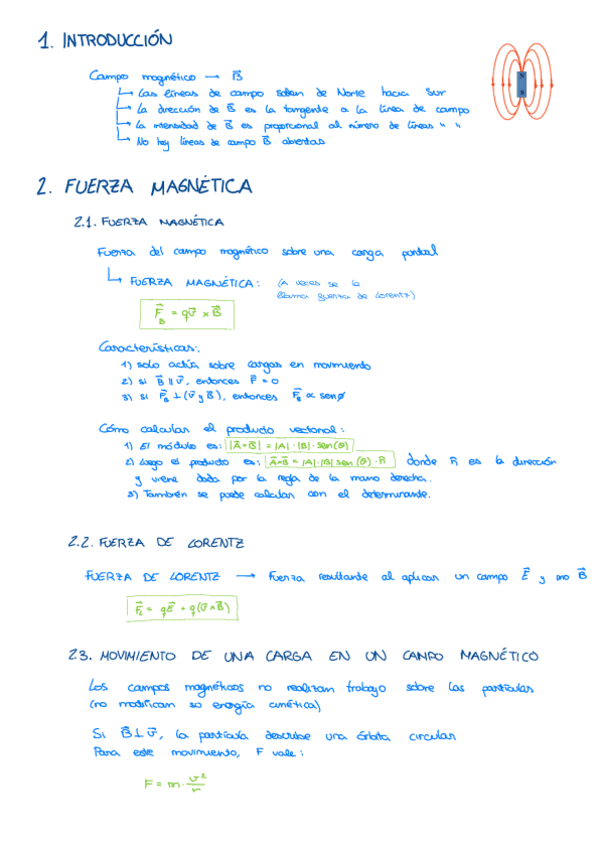 1. INTRODUCCIÓN
Campo magnético → B⃗
↳ Las líneas de campo salen de Norte hacia Sur
↳ La dirección de B⃗ es la tangente a la línea de campo
↳ La intensidad de B⃗ es proporcional al número de líneas " "
↳ No hay líneas de campo B⃗ abiertas
2. FUERZA MAGNÉTICA
2.1. FUERZA MAGNÉTICA
Fuerza del campo magnético sobre una carga puntual
↳ FUERZA MAGNÉTICA: (A veces se la
llama fuerza de Lorentz)
F⃗_B = qv⃗ × B⃗
Características:
1) solo actúa sobre cargas en movimiento
2) si B⃗ ∥ v⃗, entonces F⃗ = 0
3) si F⃗_B ⊥ (v⃗ y B⃗), entonces F⃗_B ∝ senφ
Cómo calcular el producto vectorial:
1) El módulo es: |A⃗×B⃗| = |A|·|B|·sen(θ)
2) Luego el producto es: A⃗×B⃗ = |A|·|B| sen(θ)·n̂ donde n̂ es la dirección
y viene dada por la regla de la mano derecha.
3) También se puede calcular con el determinante.
2.2. FUERZA DE LORENTZ
FUERZA DE LORENTZ → Fuerza resultante al aplicar un campo E⃗ y uno B⃗
F⃗_L = qE⃗ + q(v⃗×B⃗)
2.3. MOVIMIENTO DE UNA CARGA EN UN CAMPO MAGNÉTICO
Los campos magnéticos no realizan trabajo sobre las partículas
(no modifican su energía cinética)
Si B⃗ ⊥ v⃗, la partícula describe una órbita circular
Para este movimiento, F vale:
F = m · v²/r